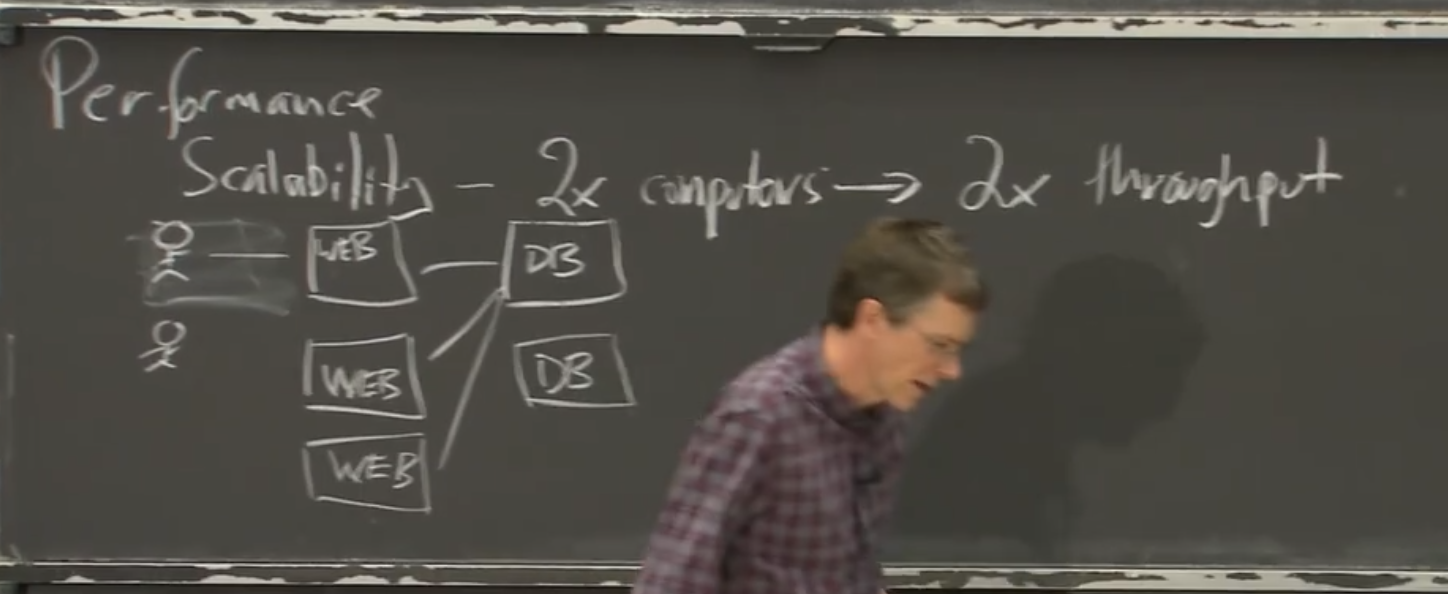 Performance
Scalability – 2x computers → 2x throughput
WEB DB
WEB DB
WEB